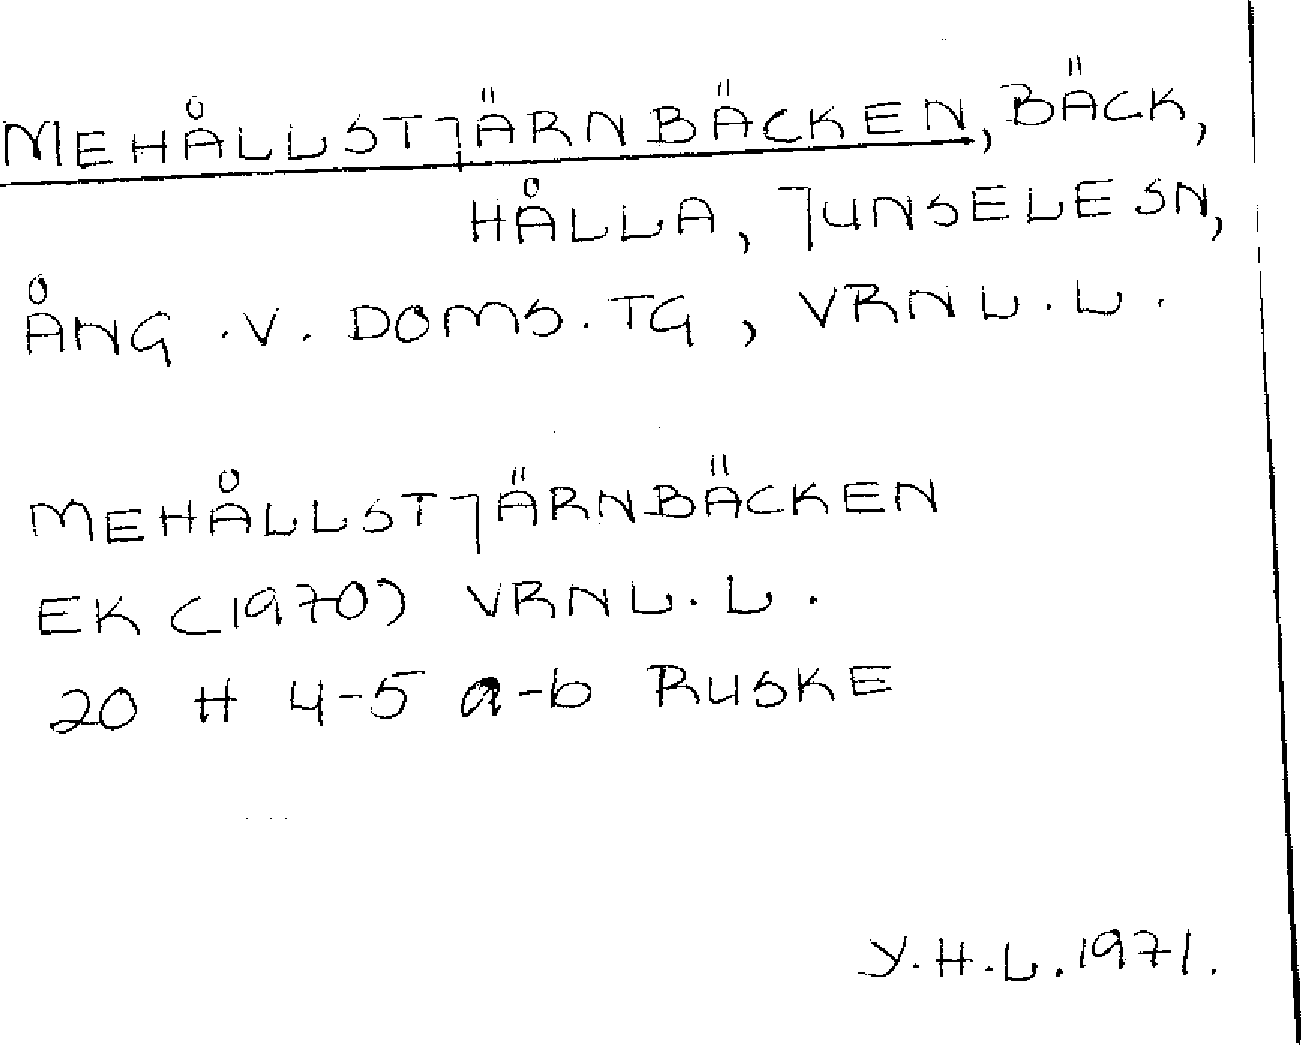 MEHÅLLSTJÄRNBÄCKEN, BÄCK,
HÅLLA, JUNSELE SN,
ÅNG. V. DOMS. TG, VRNL. L.
MEHÅLLSTJÄRNBÄCKEN
EK (1970) VRNL. L.
20 H 4-5 a-b RUSKE
Y.H.L. 1971.